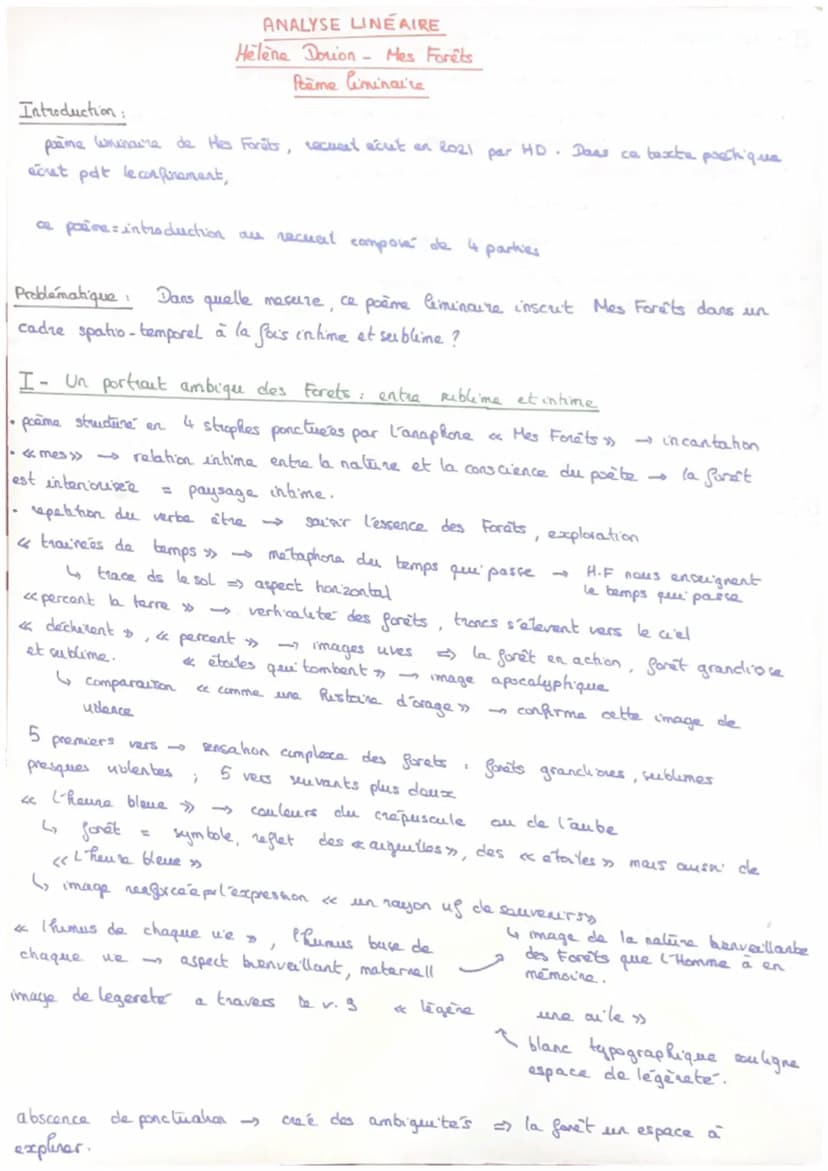 ANALYSE LINÉAIRE
Hélène Dorion - Mes Forêts
Poème liminaire
Introduction :
poème liminaire de Mes Forêts, recueil écrit en 2021 par HD. Dans ce texte poétique
écrit pdt le confinement,
ce poème = introduction au recueil composé de 4 parties
Problématique : Dans quelle mesure, ce poème liminaire inscrit Mes Forêts dans un
cadre spatio-temporel à la fois intime et sublime ?
I - Un portrait ambigu des Forets : entre sublime et intime
• poème structuré en 4 strophes ponctuées par l'anaphore « Mes Forêts » → incantation
• « mes » → relation intime entre la nature et la conscience du poète → la forêt
est interiorisée = paysage intime.
• repetition du verbe être → saisir l'essence des Forêts, exploration
« trainées de temps » → métaphore du temps qui passe → H.F nous enseignent
le temps qui passe
↳ trace ds le sol ⇒ aspect horizontal
« percent la terre » → verticalité des forêts, troncs s'élevent vers le ciel
« déchirent », « percent » → images vives ⇒ la forêt en action, forêt grandiose
et sublime.
« étoiles qui tombent » → image apocalyphique
↳ comparaison « comme une histoire d'orage » → confirme cette image de
violence
5 premiers vers → sensation complexe des forets : forêts grandioses, sublimes
presques violentes ; 5 vers suivants plus doux
« l'heure bleue » → couleurs du crépuscule ou de l'aube
↳ forêt = symbole, reflet des « aiguilles », des « étoiles » mais aussi de
« L'heure bleue »
↳ image renforcée par l'expression « un rayon vif de souvenirs »
↳ image de la nature bienveillante
des Forêts que l'Homme à en
mémoire.
« l'humus de chaque vie », l'humus base de
chaque vie → aspect bienveillant, maternell
image de legereté a travers le v. 9 « légère une aile »
blanc typographique souligne
espace de légèreté.
abscence de ponctuation → crée des ambiguités ⇒ la forêt un espace à
explorer.